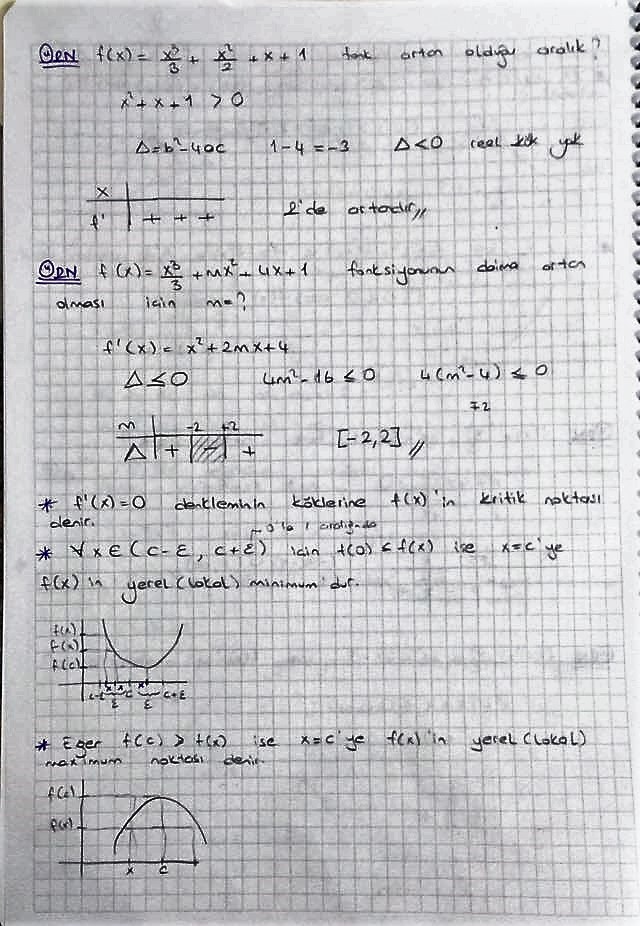 ÖRN f(x) = x³/3 + x²/2 + x + 1 fonk artan olduğu aralık?
x² + x + 1 > 0
Δ = b² - 4ac 1 - 4 = -3 Δ < 0 reel kök yok
x
f' + + + R'de artandır //
ÖRN f(x) = x³/3 + mx² + 4x + 1 fonksiyonunun daima artan
olması için m = ?
f'(x) = x² + 2mx + 4
Δ ≤ 0 4m² - 16 ≤ 0 4(m² - 4) ≤ 0
∓2
m -2 +2
Δ + - + [-2, 2] //
* f'(x) = 0 denkleminin köklerine f(x)'in kritik noktası
denir.
0 ile 1 aralığında
* ∀x ∈ (c - ε, c + ε) için f(c) ≤ f(x) ise x = c'ye
f(x) in yerel (lokal) minimum'dur.
f(x)
f(x)
f(c)
c-ε x x c x c+ε
ε ε
* Eğer f(c) > f(x) ise x = c'ye f(x)'in yerel (lokal)
maximum noktası denir.
f(c)
f(x)
x c